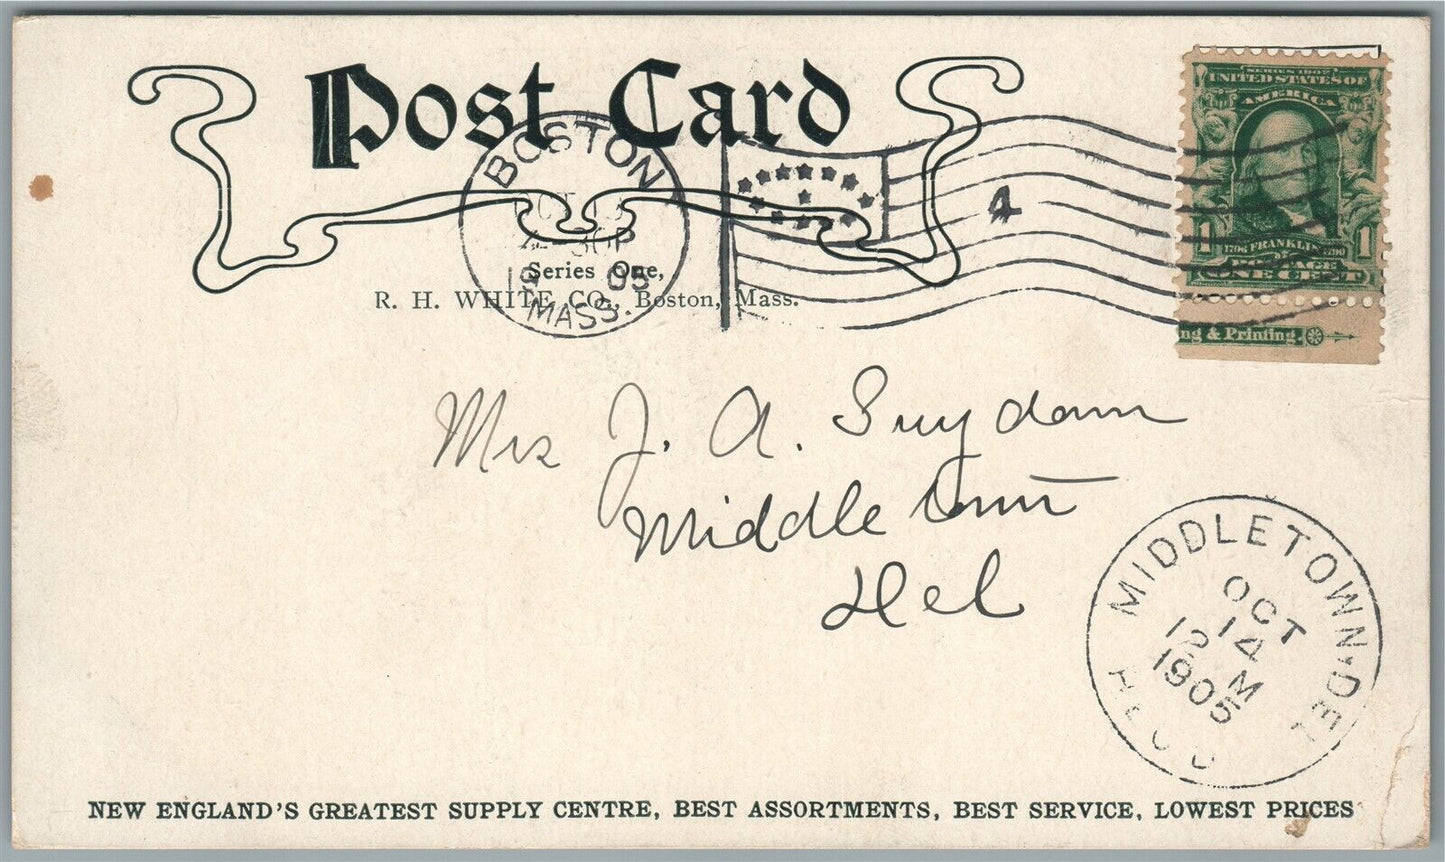 Post Card
BOSTON
30P
19 05
MASS.
4
Series One,
R. H. WHITE CO., Boston, Mass.
SERIES 1902
UNITED STATES OF
AMERICA
1 1706 FRANKLIN 1790 1
POSTAGE
ONE CENT
ng & Printing.
Mrs J. A. Suydam
Middletown
Del
MIDDLETOWN. DEL
OCT
14
12 M
1905
REC'D
NEW ENGLAND'S GREATEST SUPPLY CENTRE, BEST ASSORTMENTS, BEST SERVICE, LOWEST PRICES